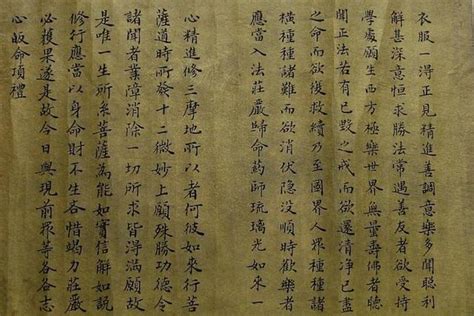 衣服一得正見精進善調意樂多聞聰利
解甚深意恒求勝法常遇善友者欲受持
學處願生西方極樂世界無量壽佛者聽
聞正法若有已毀之戒而欲還清淨已盡
之命而欲復救續乃至國界人界種種諸
橫種種諸難而欲消伏隱没順時歡樂者
應當入法莊嚴歸命药師琉璃光如来一
心精進修三摩地所以者何彼如来行菩
薩道時所發十二微妙上願殊勝功德令
諸聞者業障消除一切所求皆得滿願故
是唯一生所系菩薩為能如實信解如説
修行應當以身命財不生吝惜竭力莊嚴
必獲果遂是故今日與現前
等各各志
心皈命頂禮